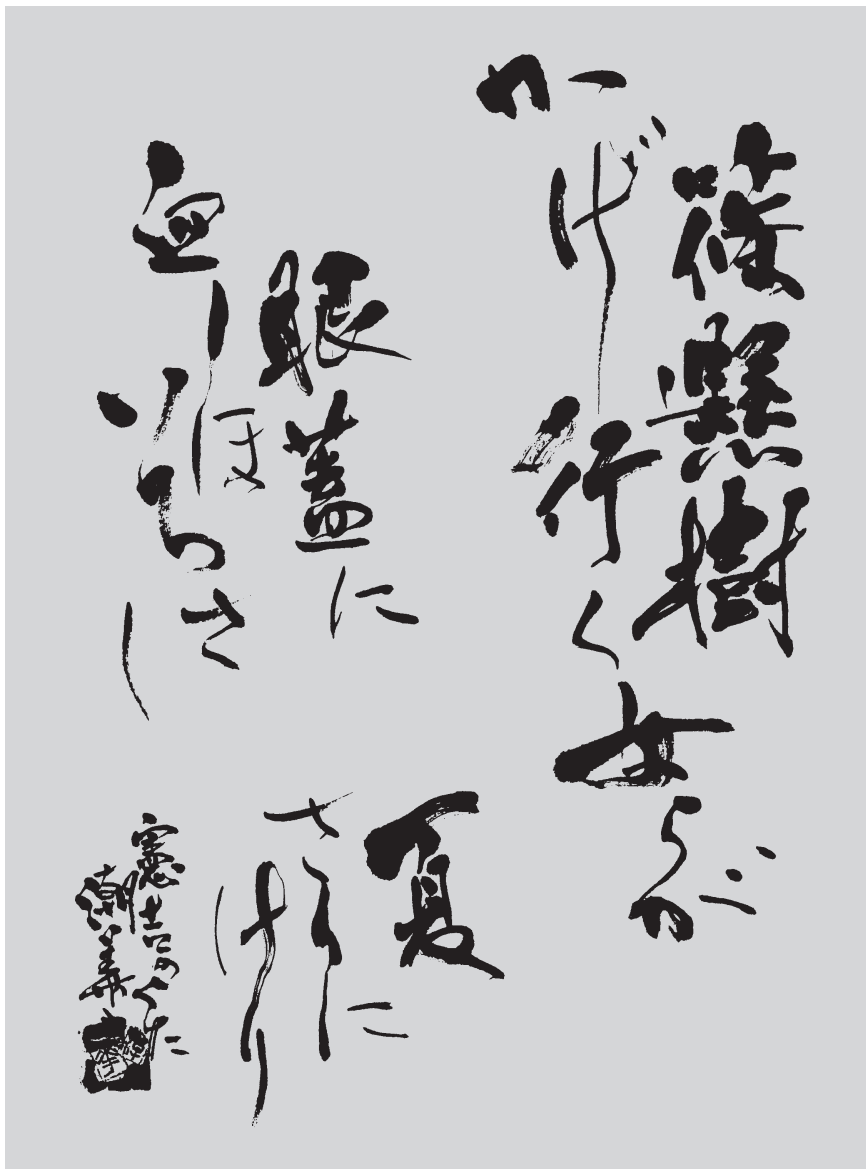 篠懸樹
かげ行く女らが
眼蓋に
血しほ
いろさし
夏
さりに
けり
憲吉のうた